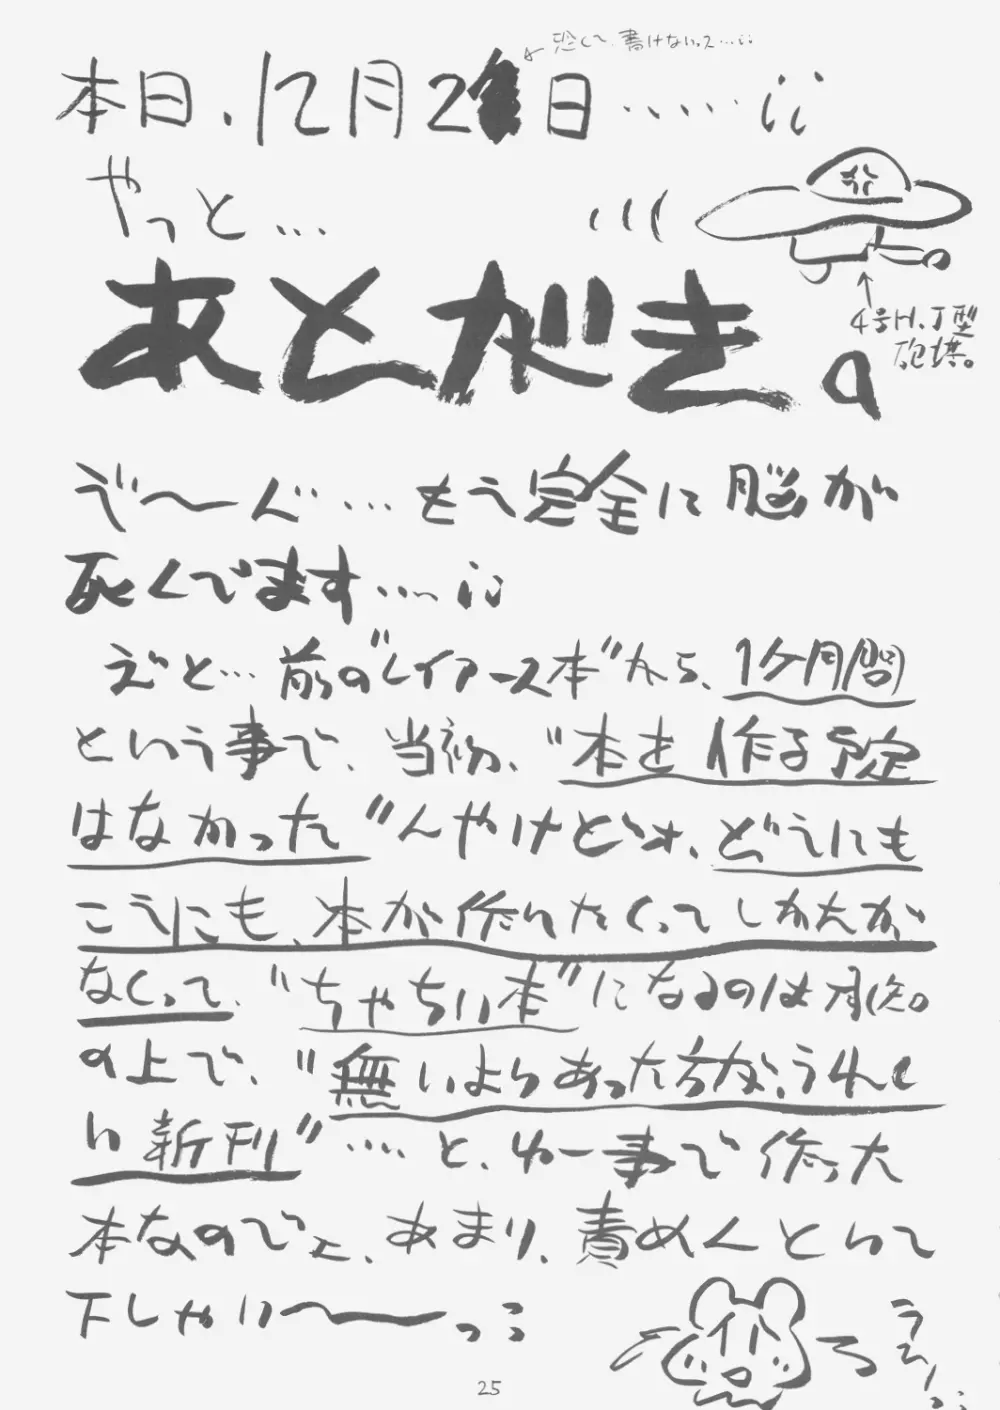 恐くて、書けないっス…
本日、12月2 日……
やっと…
あとがき。
4号H、J型
砲塔。
で〜ん゛…もう完全に脳が
死んでます…
えと…前の"レイアース本"から、1ケ月間
という事で、当初、"本を作る予定
はなかった"んやけどォ、どうにも
こうにも、本が作りたくってしかたが
なくって、"ちゃちい本"になるのは承知。
の上で、"無いよりあった方が、うれし
い新刊"……と、ゆー事で作った
本なのでェ、あまり、責めんといて
下しゃい〜〜っ
25